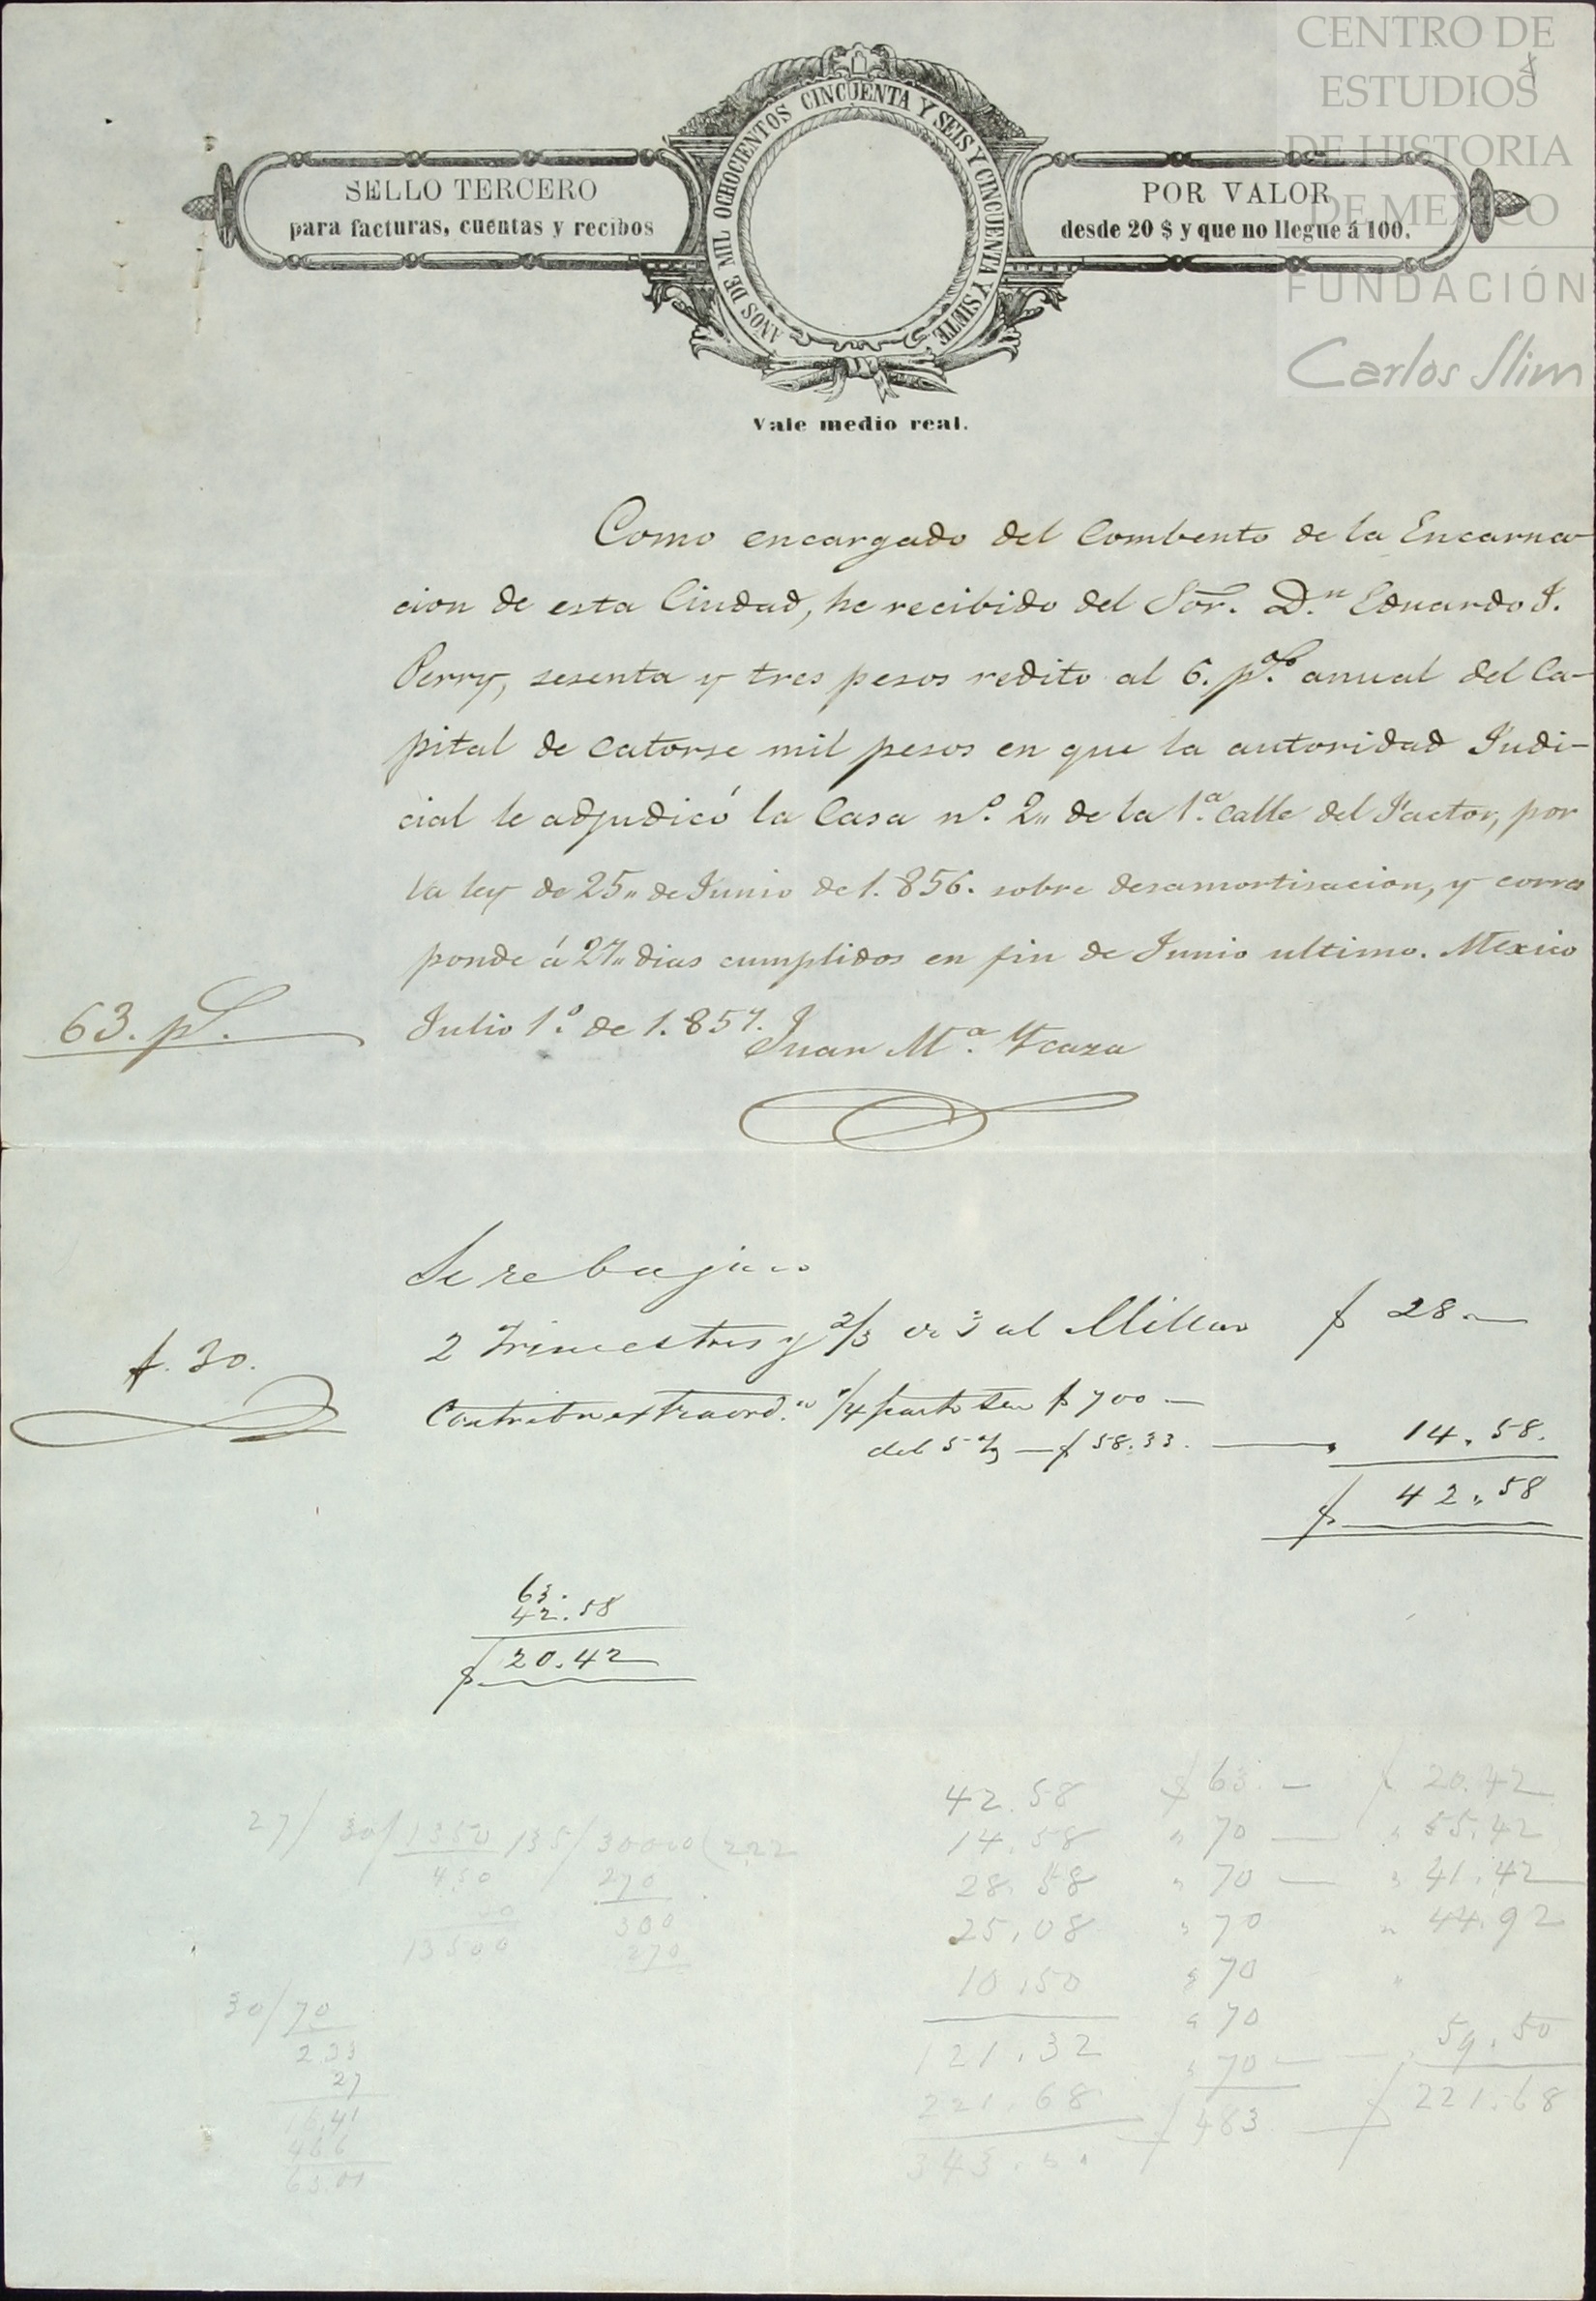 CENTRO DE
ESTUDIOS
DE HISTORIA
DE MEXICO
FUNDACIÓN
Carlos Slim
SELLO TERCERO
para facturas, cuentas y recibos
AÑOS DE MIL OCHOCIENTOS CINCUENTA Y SEIS Y CINCUENTA Y SIETE
POR VALOR
desde 20 $ y que no llegue á 100.
Vale medio real.
Como encargado del Combento de la Encarna-
cion de esta Ciudad, he recibido del Sor. D.n Eduardo J.
Perry, sesenta y tres pesos redito al 6. p.% anual del Ca-
pital de Catorse mil pesos en que la autoridad Judi-
cial le adjudicó la Casa n.o 2,, de la 1.a Calle del Factor, por
la ley de 25,, de Junio de 1.856. sobre desamortisacion, y corres
ponde á 27,, dias cumplidos en fin de Junio ultimo. Mexico
63. ps. Julio 1.o de 1.857.
Juan M.a Ycaza
Se rebajan
2 Trimestres y 2/3 de 3 al Millar $ 28.—
f. 30.
Contribn extraord.a 1/4 parte sea $ 700 —
del 5 % — $ 58.33. — 14.58.
$ 42.58
63.
42.58
$ 20.42
42.58 $ 63. — $ 20.42
14.58 " 70 — " 55.42
28.58 " 70 — " 41.42
25.08 " 70 " 44.92
10.50 " 70 "
" 70
121.32 " 70 — 59.50
221.68 $ 483 — $ 221.68
27/ 30/1350 135/30000(222
450 270
300
13500 270
30/70
233
27
16.41
466
63.01